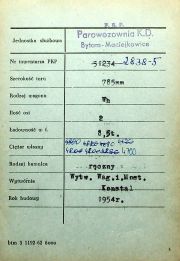 P. K. P.
Jednostka służbowa
Parowozownia K.D.
Bytom-Maciejkowice
Nr inwentarza PKP
51234 2838-5
Szerokość toru
785mm
Rodzaj wagonu
Wh
Ilość osi
2
Ładowność w t.
8,5t.
Ciężar własny
4700
Rodzaj hamulca
ręczny
Wytwórnia
Wytw. Wag. i Most.
Konstal
Rok budowy
1954r.